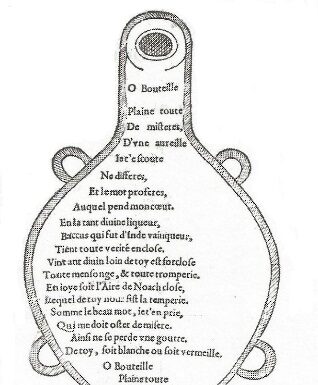 O Bouteille
Plaine toute
De misteres,
D'vne aureille
Iet'escoute
Ne differes,
Et le mot proferes,
Auquel pend mon cœur.
En la tant diuine liqueur,
Baccus qui fut d'Inde vainqueur,
Tient toute verité enclose.
Vint ant diuin loin de toy est forclose
Toute mensonge, & toute tromperie.
En ioye soit l'Aire de Noach close,
Lequel de toy nous fist la temperie.
Somme le beau mot, iet'en prie,
Qui me doit oster de misere.
Ainsi ne se perde vne goutte.
De toy, soit blanche ou soit vermeille.
O Bouteille
Plaine toute